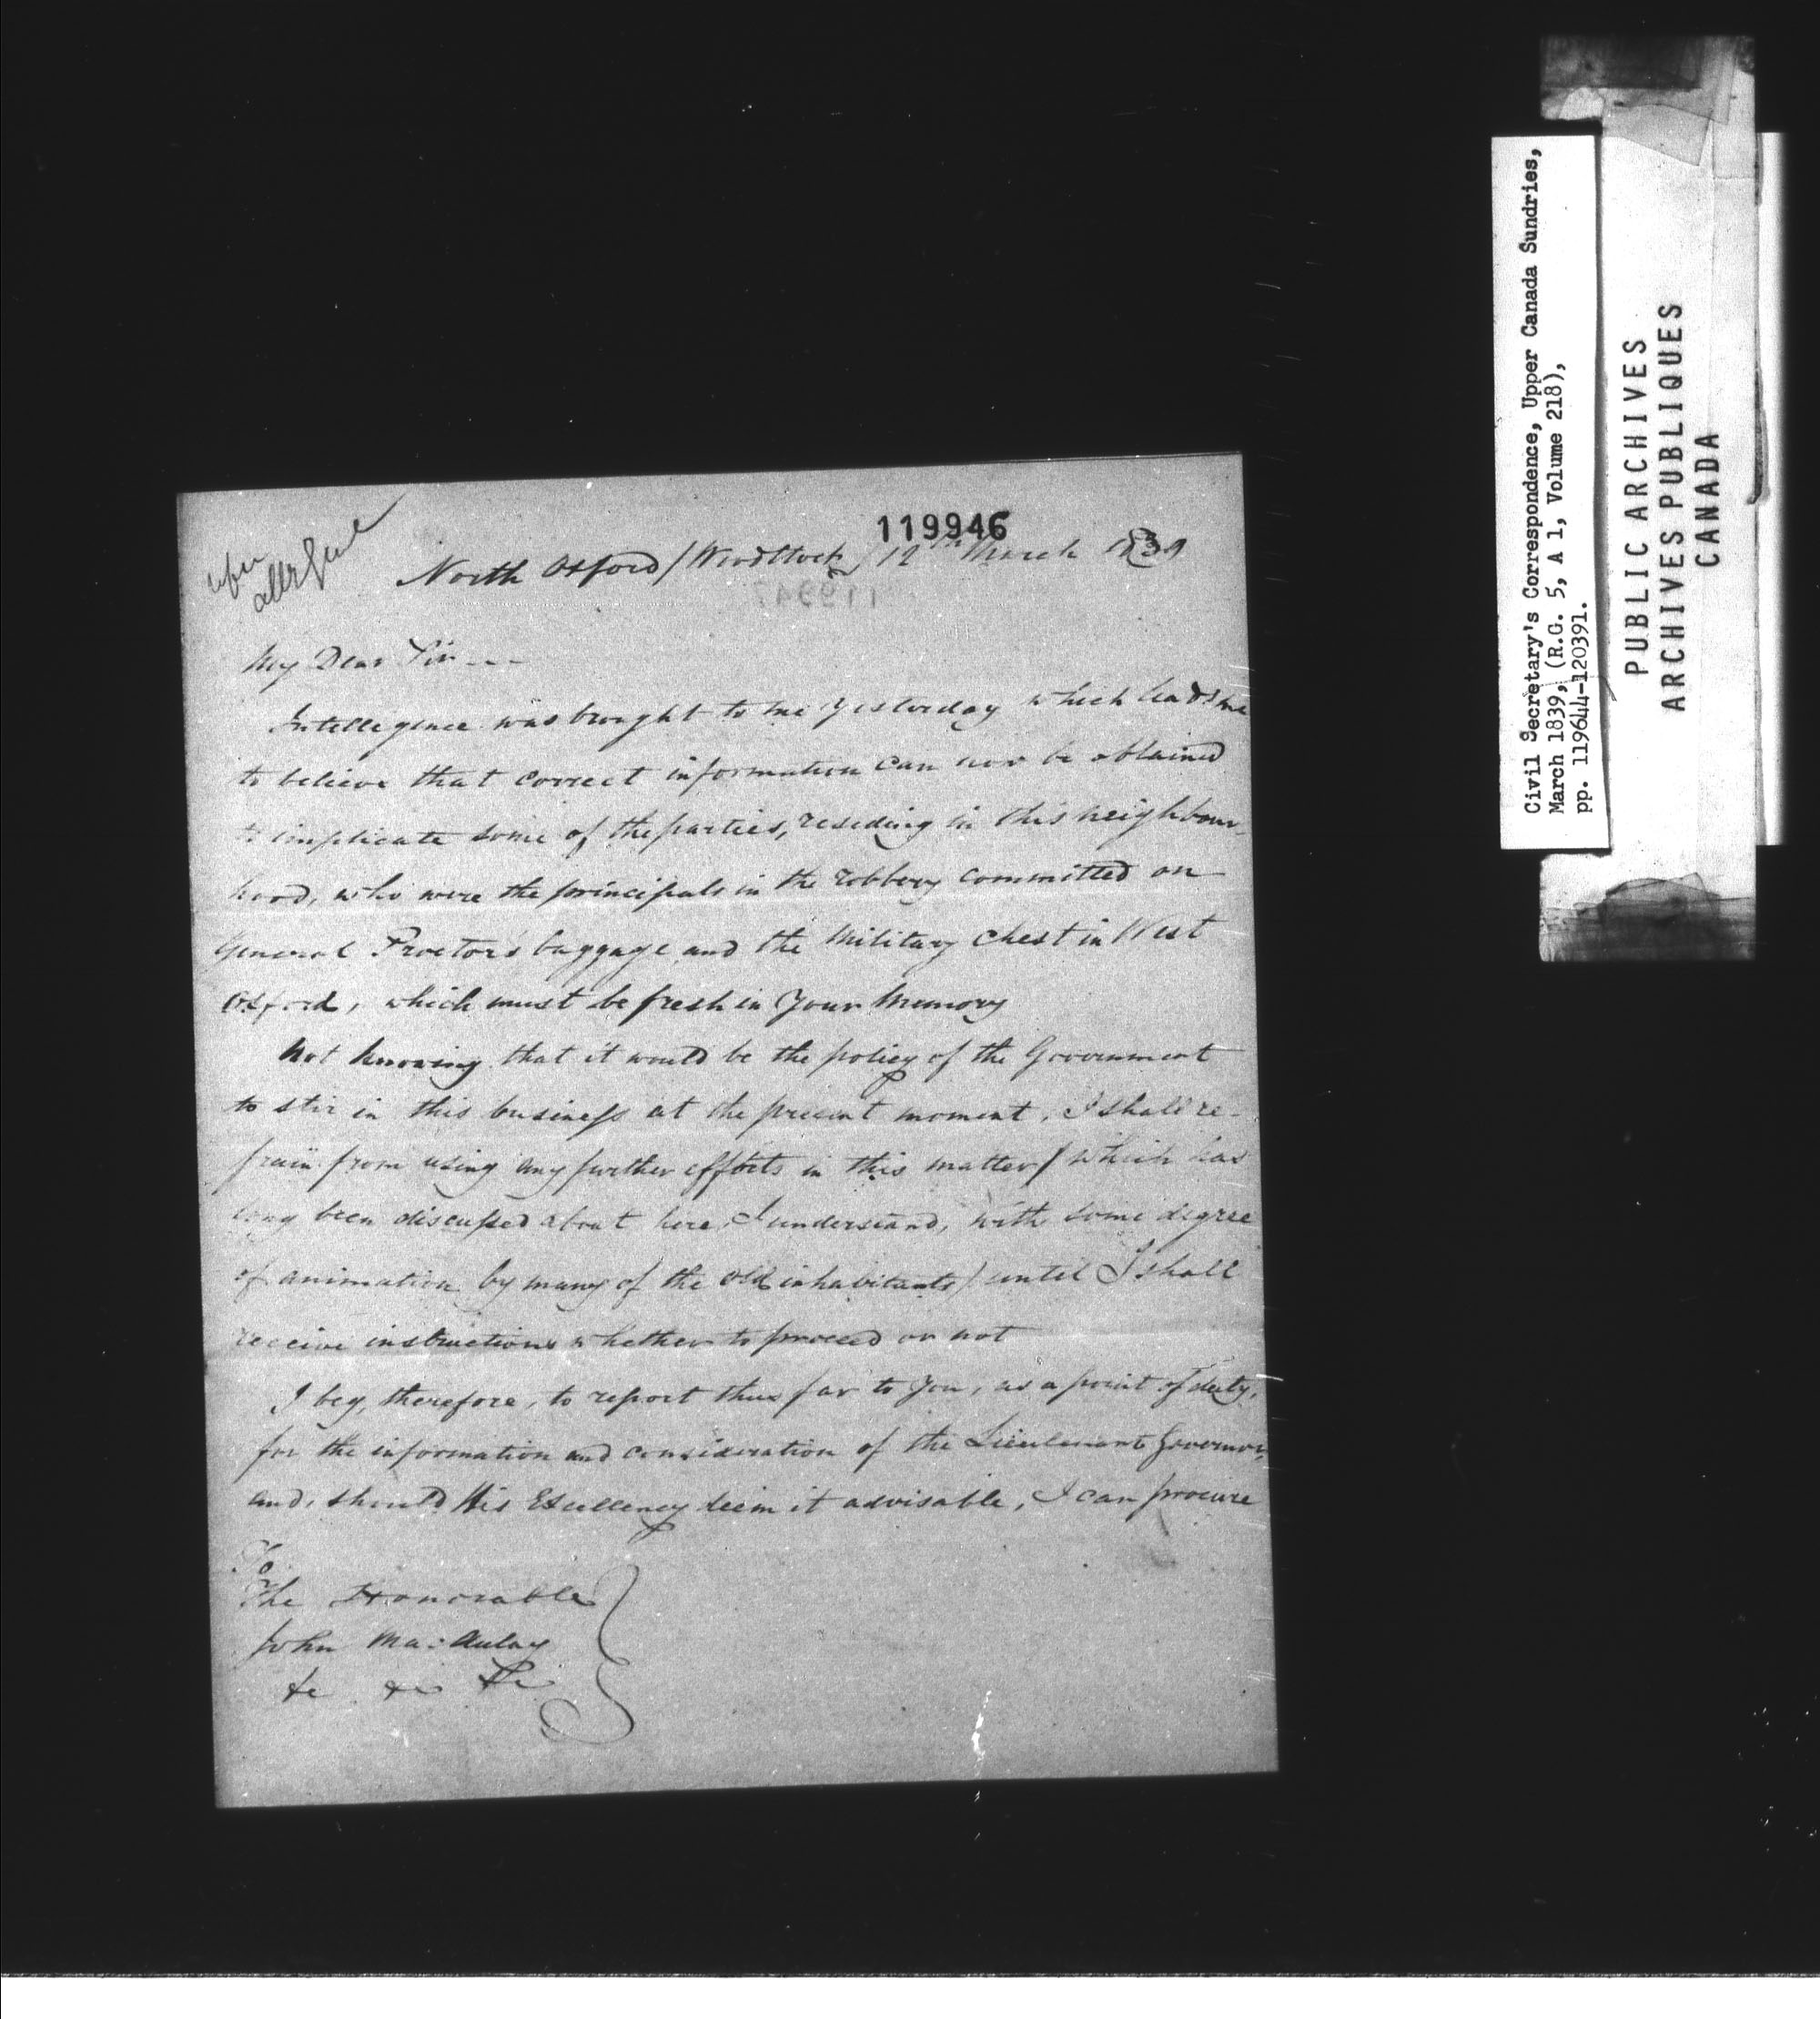 119946
North Oxford / Woodstock / 12th March 1839
My Dear Sir ---
Intelligence was brought to me yesterday which leads me
to believe that correct information can now be obtained
to implicate some of the parties, residing in this neighbour-
hood, who were the principals in the robbery committed on
General Proctor's baggage and the Military Chest in West
Oxford, which must be fresh in Your Memory
Not knowing that it would be the policy of the Government
to stir in this business at the present moment, I shall re-
frain from using any further efforts in this matter / which has
long been discussed about here, I understand, with some degree
of animation by many of the old inhabitants / until I shall
receive instructions whether to proceed or not
I beg, therefore, to report thus far to You, as a point of duty,
for the information and consideration of the Lieutenant Governor,
and, should His Excellency deem it advisable, I can procure
To
The Honorable
John MacAulay
&c &c &c
Civil Secretary's Correspondence, Upper Canada Sundries,
March 1839, (R.G. 5, A 1, Volume 218),
pp. 119644-120391.
PUBLIC ARCHIVES
ARCHIVES PUBLIQUES
CANADA